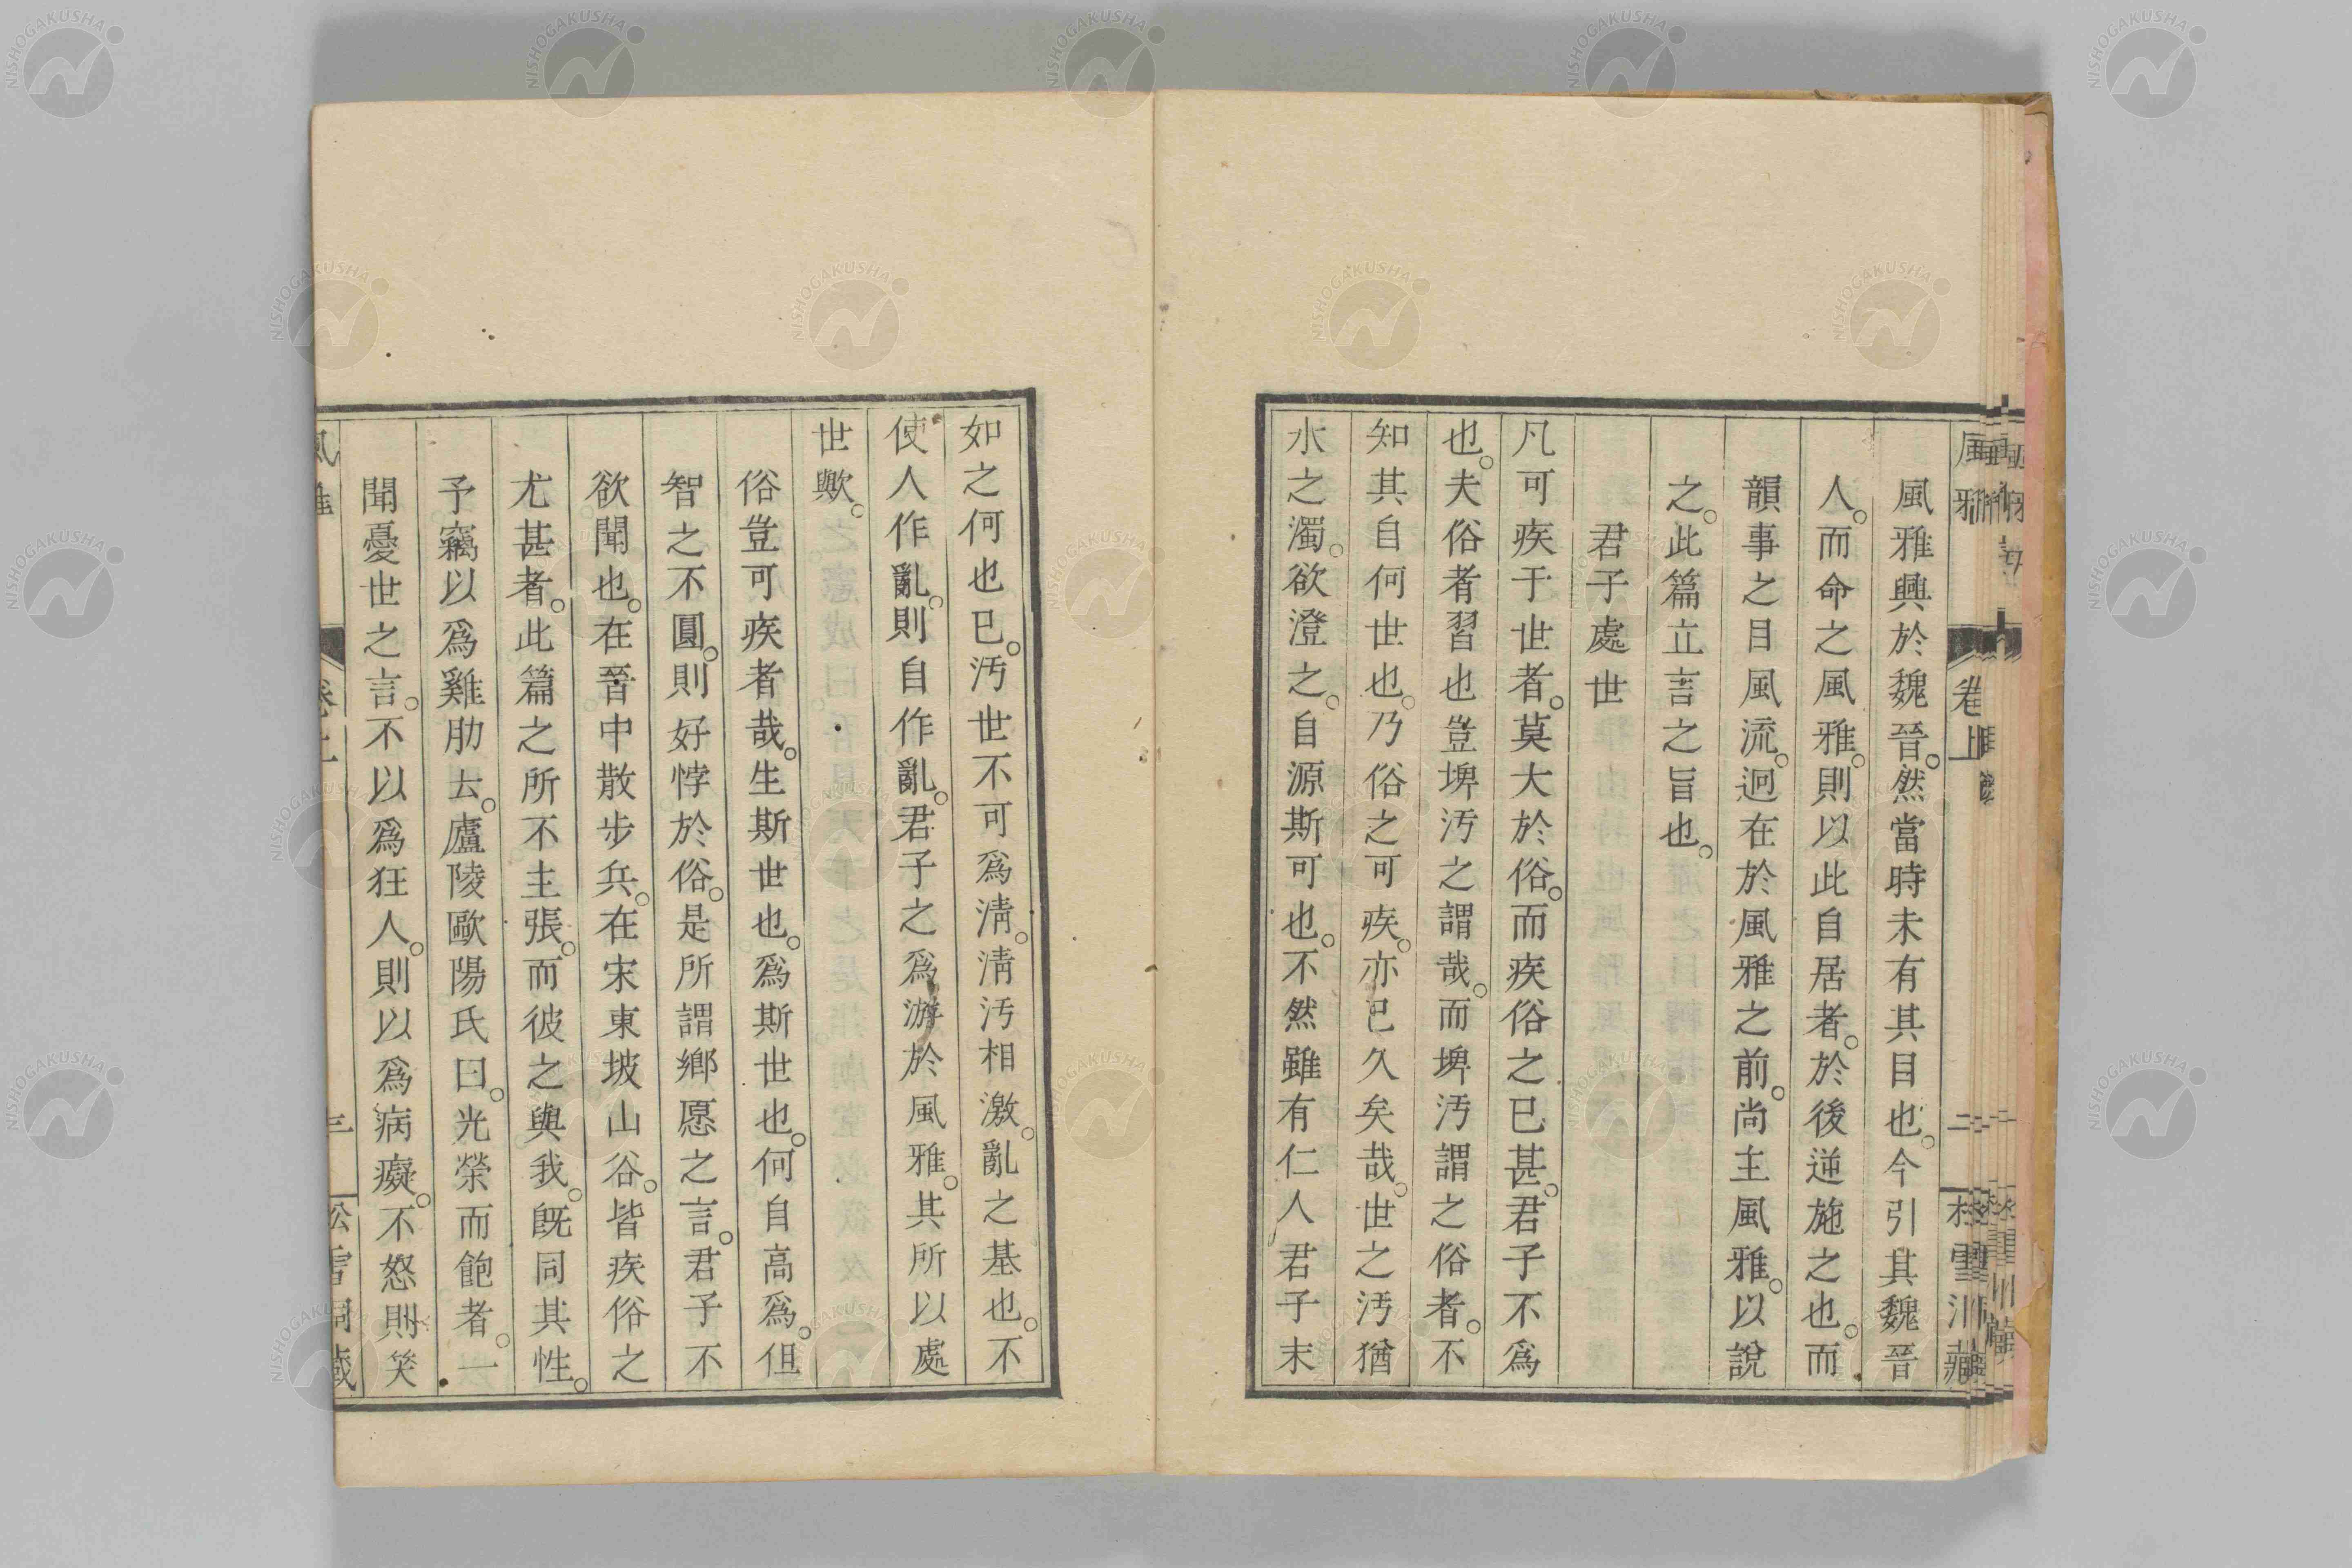 風雅興於魏晉。然當時未有其目也。今引其魏晉
人。而命之風雅。則以此自居者。於後逆施之也。而
韻事之目風流。迥在於風雅之前。尚主風雅。以說
之。此篇立言之旨也。
君子處世
凡可疾于世者。莫大於俗。而疾俗之已甚。君子不爲
也。夫俗者習也豈埤汚之謂哉。而埤汚謂之俗者。不
知其自何世也。乃俗之可疾。亦已久矣哉。世之汚猶
水之濁。欲澄之。自源斯可也。不然雖有仁人君子末
如之何也已。汚世不可爲淸。淸汚相激。亂之基也。不
使人作亂。則自作亂。君子之爲游於風雅。其所以處
世歟。
俗豈可疾者哉。生斯世也。爲斯世也。何自高爲。但
智之不圓。則好悖於俗。是所謂鄕愿之言。君子不
欲聞也。在晉中散步兵。在宋東坡山谷。皆疾俗之
尤甚者。此篇之所不主張。而彼之與我。旣同其性。
予竊以爲雞肋去。廬陵歐陽氏曰。光榮而飽者。一
聞憂世之言。不以爲狂人。則以爲病癡。不怒則笑
風雅 卷上 二
卷上 三
NISHOGAKUSHA